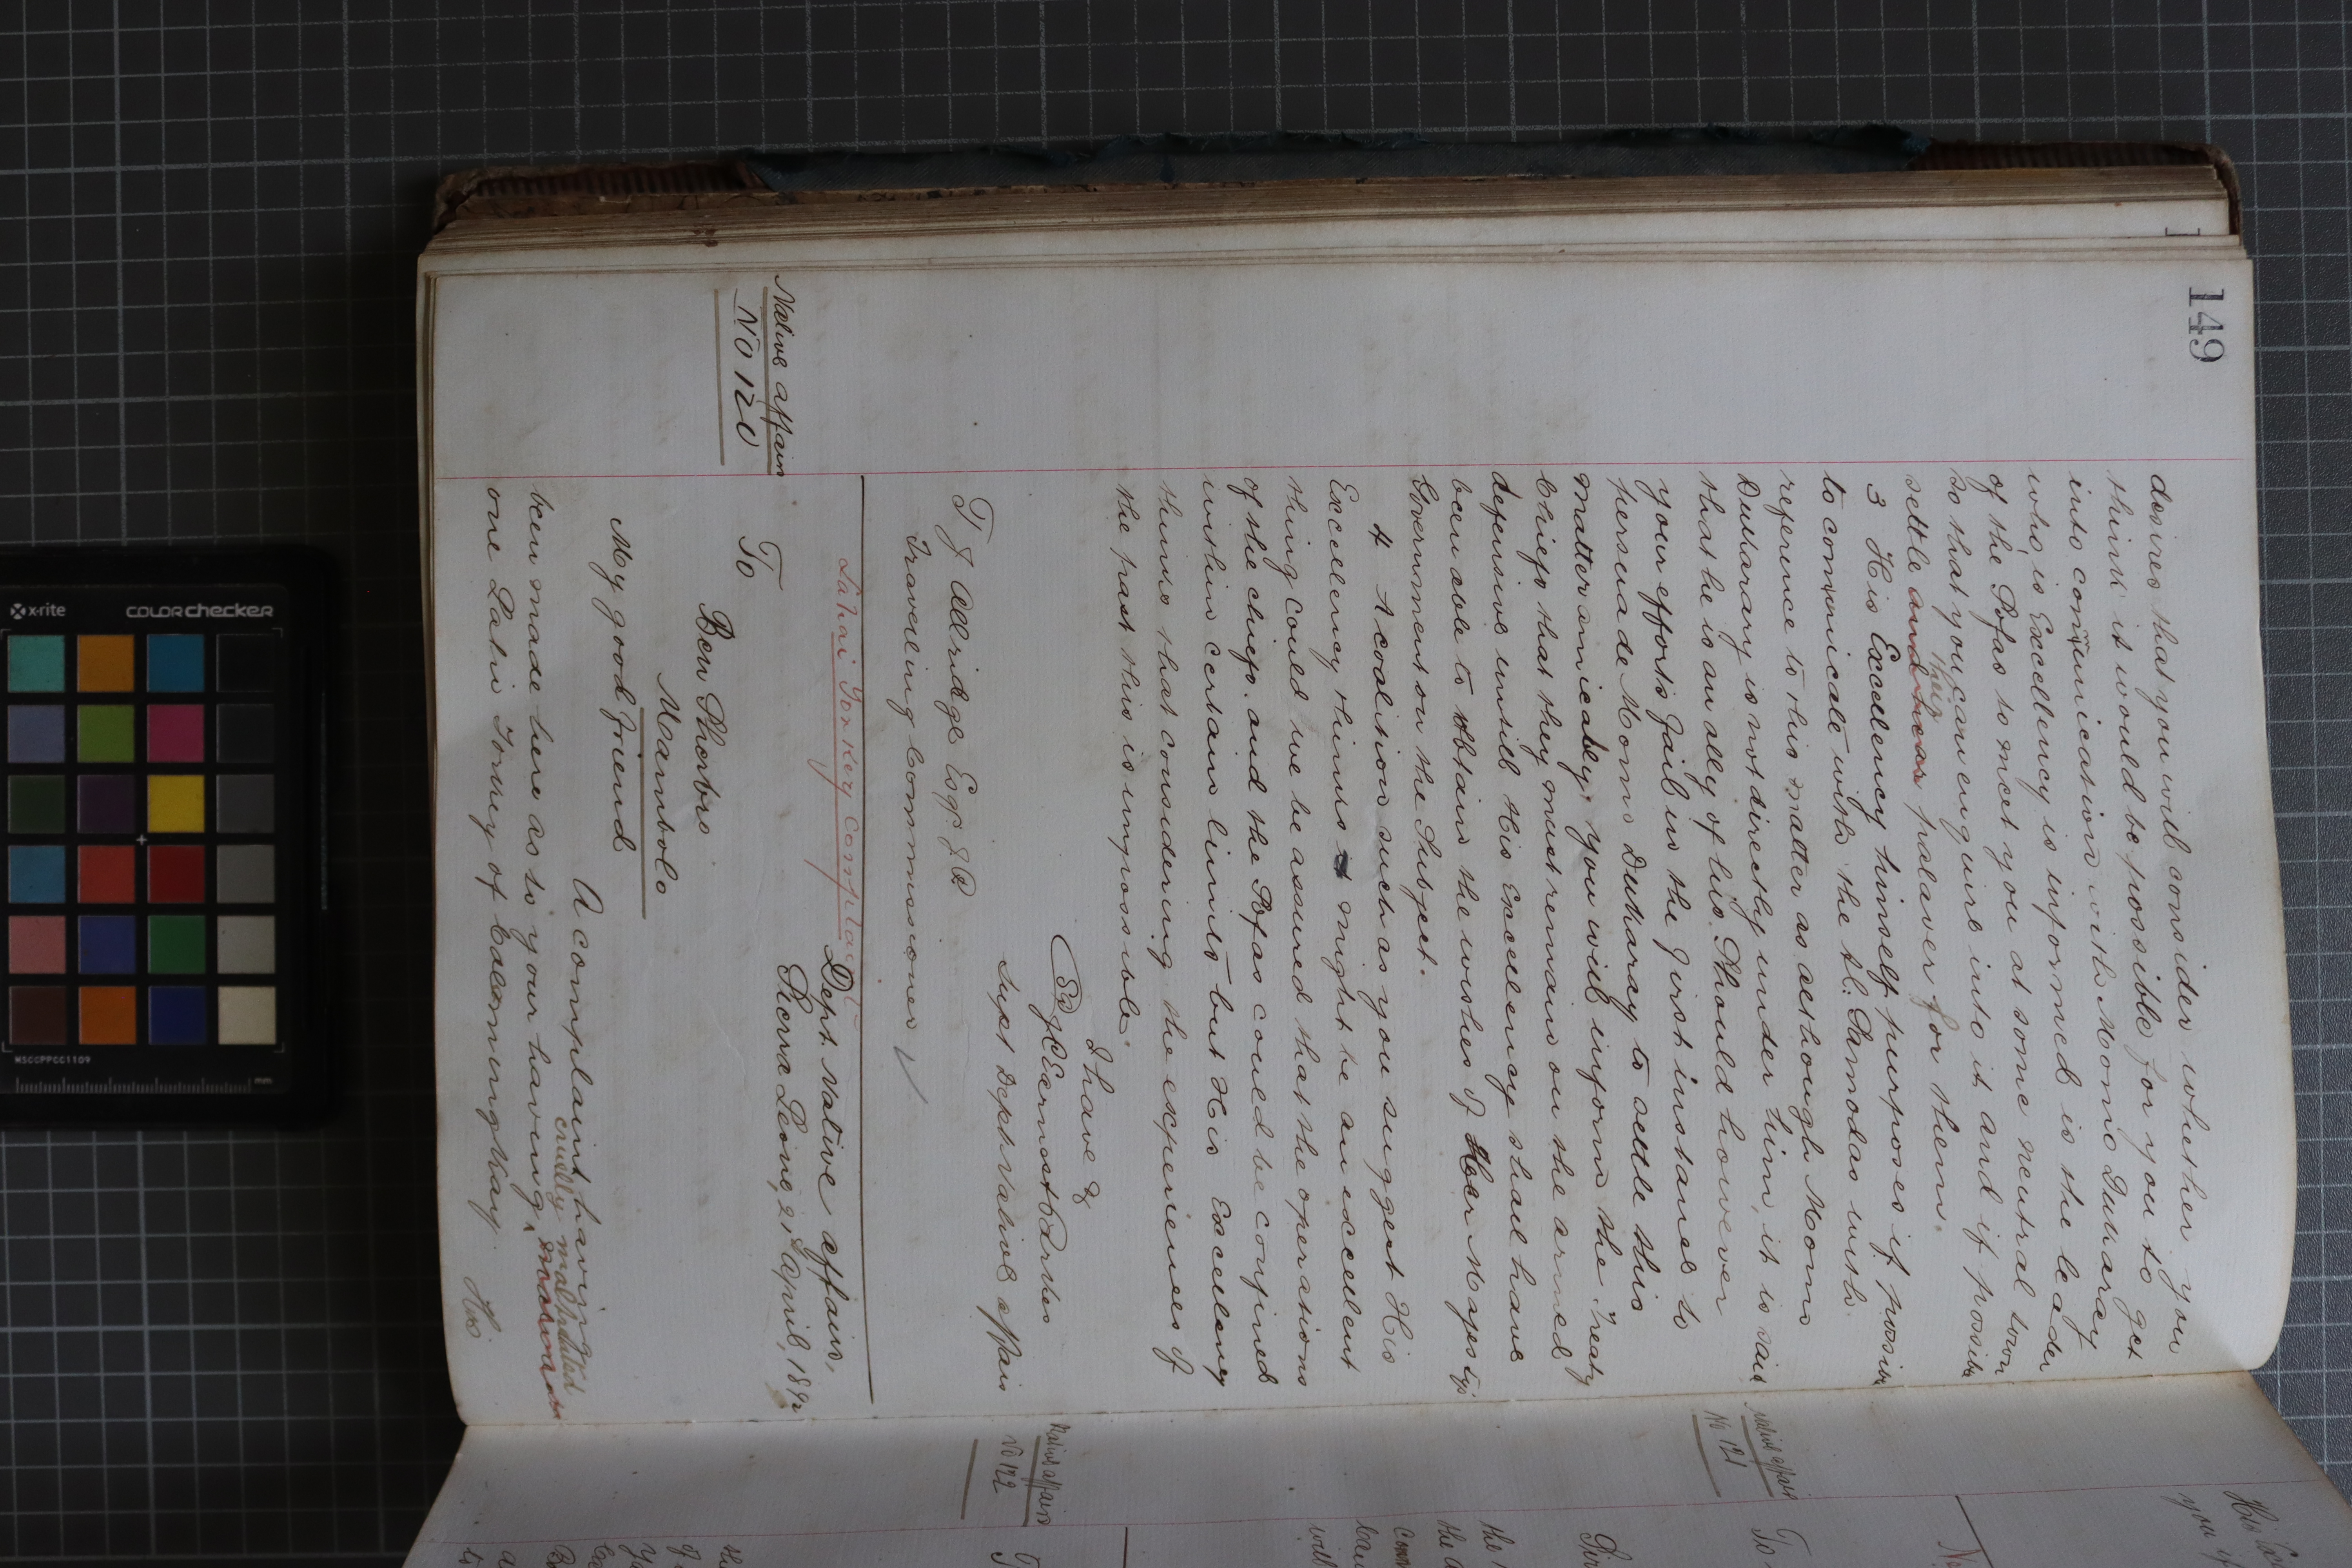 149
desires that you will consider whether you
think it would be possible for you to get
into communication with Momo Duharay
who is Excellency is informed is the leader
of the Sofas to meet you at some neutral town
so that you can enquire into it and if possible
settle their palaver for them.
3 His Excellency himself purposes if possible
to communicate with the Al. Samodas with
reference to this matter as although Momo
Duharay is not directly under him, it is said
that he is an ally of his. Should however
your efforts fail in the first instance to
persuade Momo Duharay to settle this
matter amicably you will inform the Treaty
Chiefs that they must remain on the armed
defensive until His Excellency shall have
been able to obtain the wishes of Her Majestys
Government on the Subject.
4 A coalition such as you suggest His
Excellency thinks might be an excellent
thing could we be assured that the operations
of the chiefs and the Sofas could be confined
within certain limits but His Excellency
thinks that considering the experiences of
the past this is impossible.
I have &
(Sg) J C Ernest Parkes
Supt Dept Native affairs
T J Alldridge Esqr J P
Travelling Commissioner
Lahai Yonkery Complaint
Native affairs
No 120
Dept. Native affairs,
Sierra Leone, 21st April, 1892
To
Bey Sherbro
Mambolo
My good friend
A complaint having
been made here as to your having cruelly maltreated
one Lahi Yonkery of Calomingkay
His
Native affairs
No 121
Native affairs
No 122
His
you
To
the
will